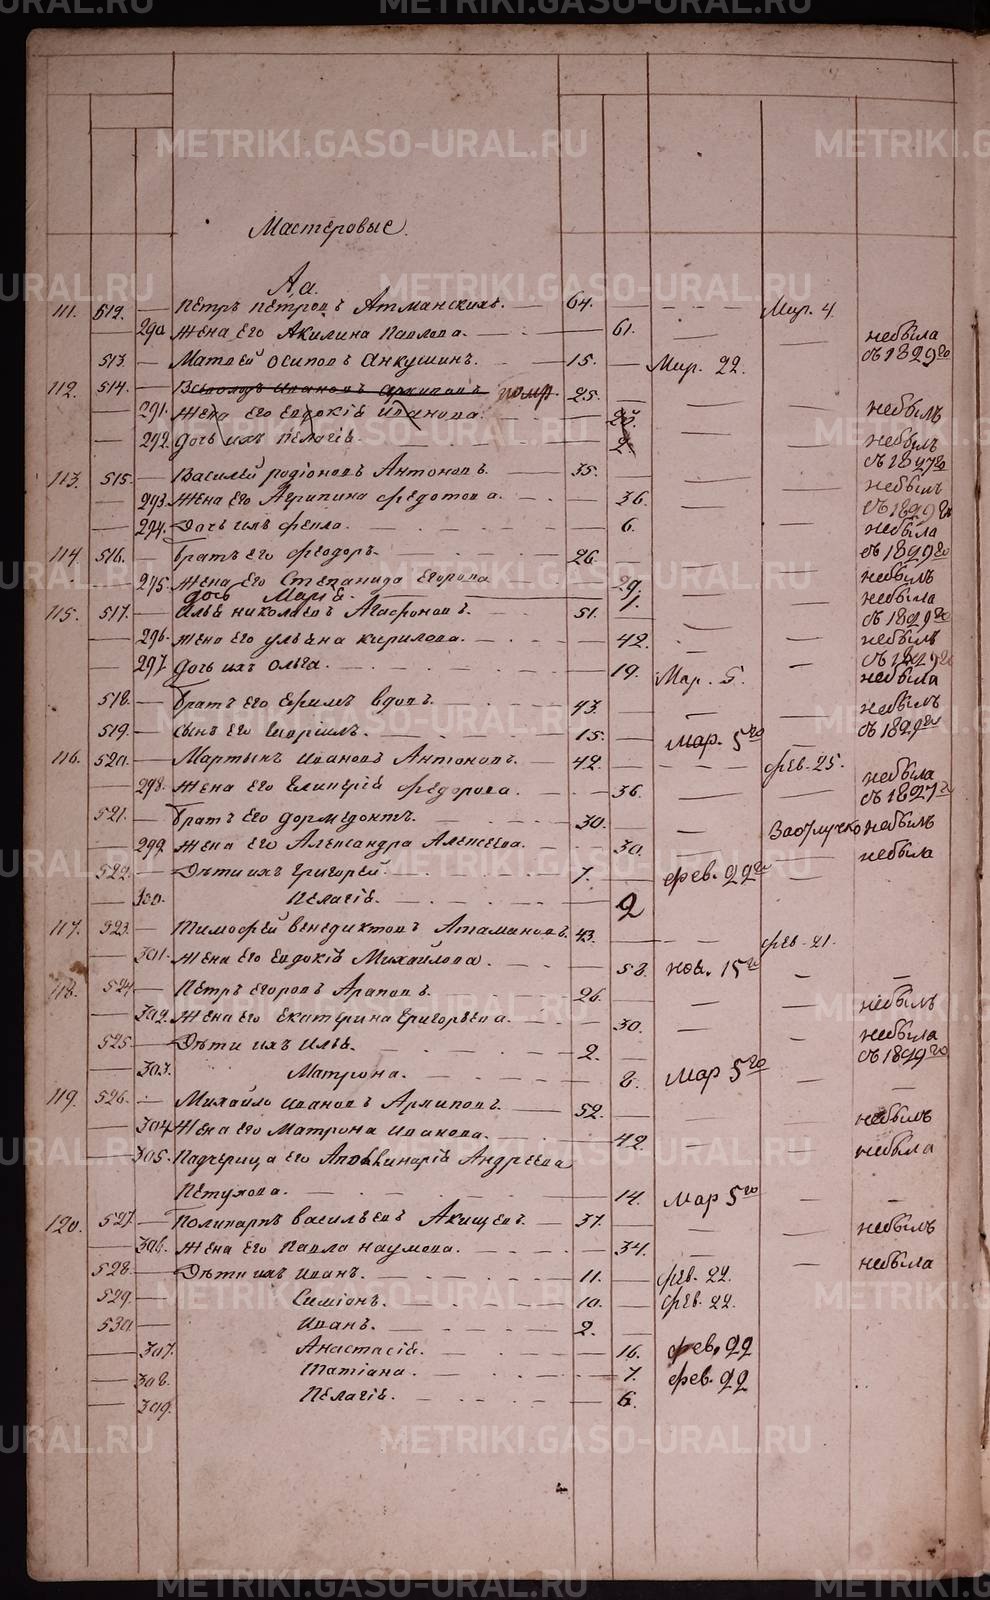 METRIKI.GASO-URAL.RU
Мастеровые.
Аа.
111. 512. — Петръ Петровъ Атманскихъ. 64. Мар. 4.
290 Жена его Акилина Павлова. 61. небыла
513. — Матвей Осиповъ Анкушинъ. 15. Мар. 22. съ 1829го
112. 514. — Иванов Архипов помр 25.
291. Жена его Евдокіѣ Иванова. небылъ
292. Дочь ихъ Пелагіѣ. 2. небылъ
съ 1827го
113. 515. Василей Родіоновъ Антоновъ. 35. небылъ
293. Жена его Агрипина Федотова. 36. съ 1829го
294. Дочь ихъ Фекла. 6. небыла
114. 516. Братъ его Феодоръ. 26. съ 1829го
295. Жена его Степанида Егорова 29. небылъ
дочь Маріѣ. 1. небыла
115. 517. Илья Николаевъ Агафоновъ. 51. съ 1829го
296. Жена его Ульѣна Кирилова. 42. небылъ
297. Дочь ихъ Ольга. 19. Мар. 5. съ 1829го
небыла
518. Братъ его Ефимъ вдовъ. 43. небылъ
519. Сынъ его 15. Мар. 5го съ 1829го
116. 520. — Мартынъ Ивановъ Антоновъ. 42. фев. 25.
298. Жена его Федорова. 36. небыла
съ 1827го
521. Братъ его Дормедонтъ. 30. небылъ
299. Жена его Александра Алексеева. 30. небыла
522. Дѣти ихъ Григорей. 7. фев. 22го
300. Пелагіѣ. 2
117. 523. — Тимофей Венедиктовъ Атамановъ. 43. фев. 21.
301. Жена его Евдокіѣ Михайлова. 58. ноя. 15го
118. 524 Петръ Егоровъ Араповъ. 26. небылъ
302. Жена его Екатерина Григорьева. 30. небыла
525. Дѣти ихъ Ильѣ. 2. съ 1829го
303. Матрона. 8. Мар 5го
119. 526. Михайло Ивановъ Архиповъ. 52. небылъ
304 Жена его Матрона Иванова. 42. небыла
305. Падчерица его Аполлинаріѣ Андреева
Петухова. 14. Мар 5го
120. 527. Поликарпъ Васильевъ Акищевъ. 37. небылъ
306. Жена его Павла Наумова. 34. небыла
528. Дѣти ихъ Иванъ. 11. фев. 22.
529. Симіонъ. 10. фев. 22.
530 Иванъ. 2.
307. Анастасіѣ. 16. фев. 22
308. Татіана. 7. фев. 22
309. Пелагіѣ. 6.
METRIKI.GASO-URAL.RU